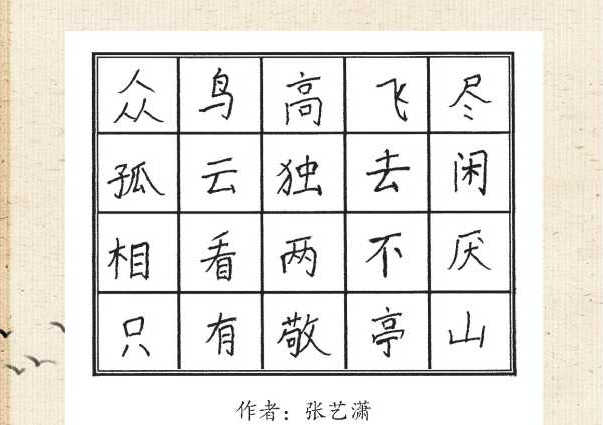 众鸟高飞尽
孤云独去闲
相看两不厌
只有敬亭山
作者：张艺潇